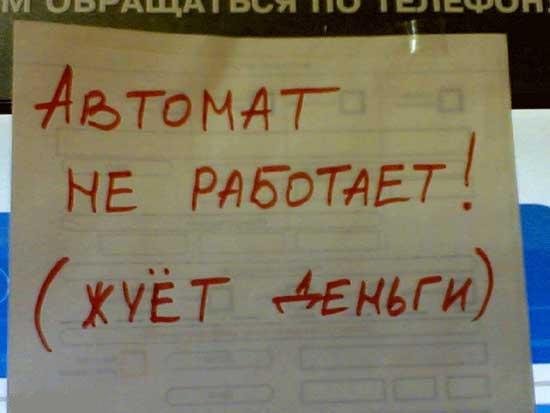 М ОБРАЩАТЬСЯ ПО ТЕЛЕФОН
АВТОМАТ
НЕ РАБОТАЕТ!
(ЖУЁТ ДЕНЬГИ)